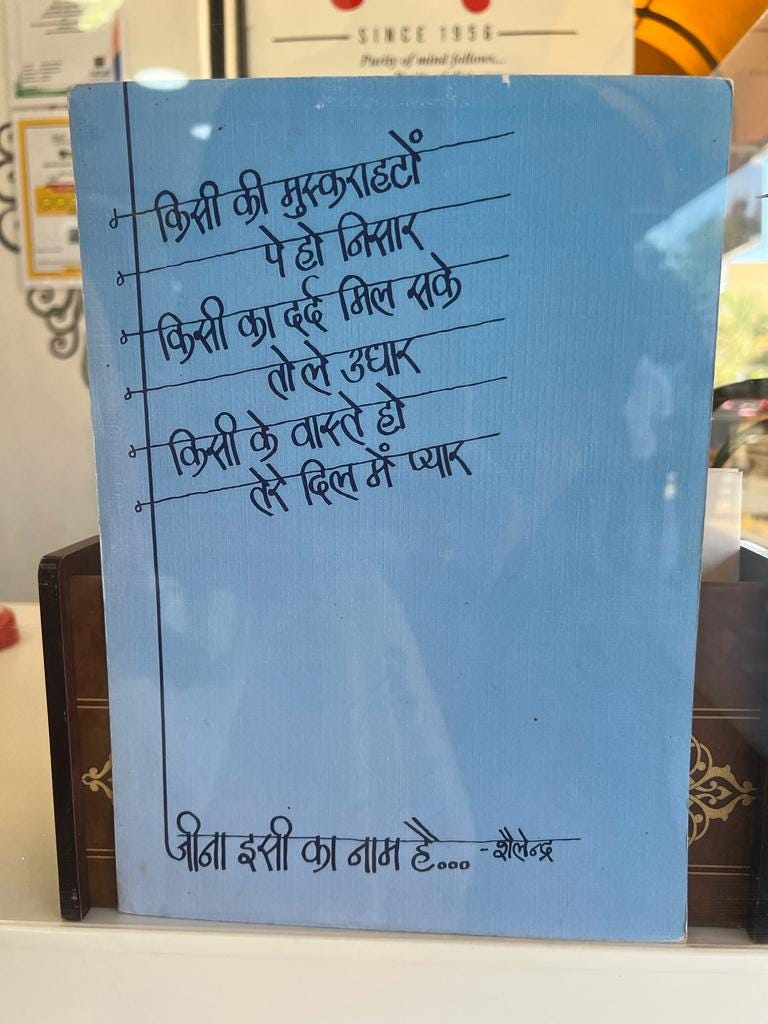 SINCE 1956
Purity of mind follows...
किसी की मुस्कराहटों
पे हो निसार
किसी का दर्द मिल सके
तो ले उधार
किसी के वास्ते हो
तेरे दिल में प्यार
जीना इसी का नाम है... -शैलेन्द्र